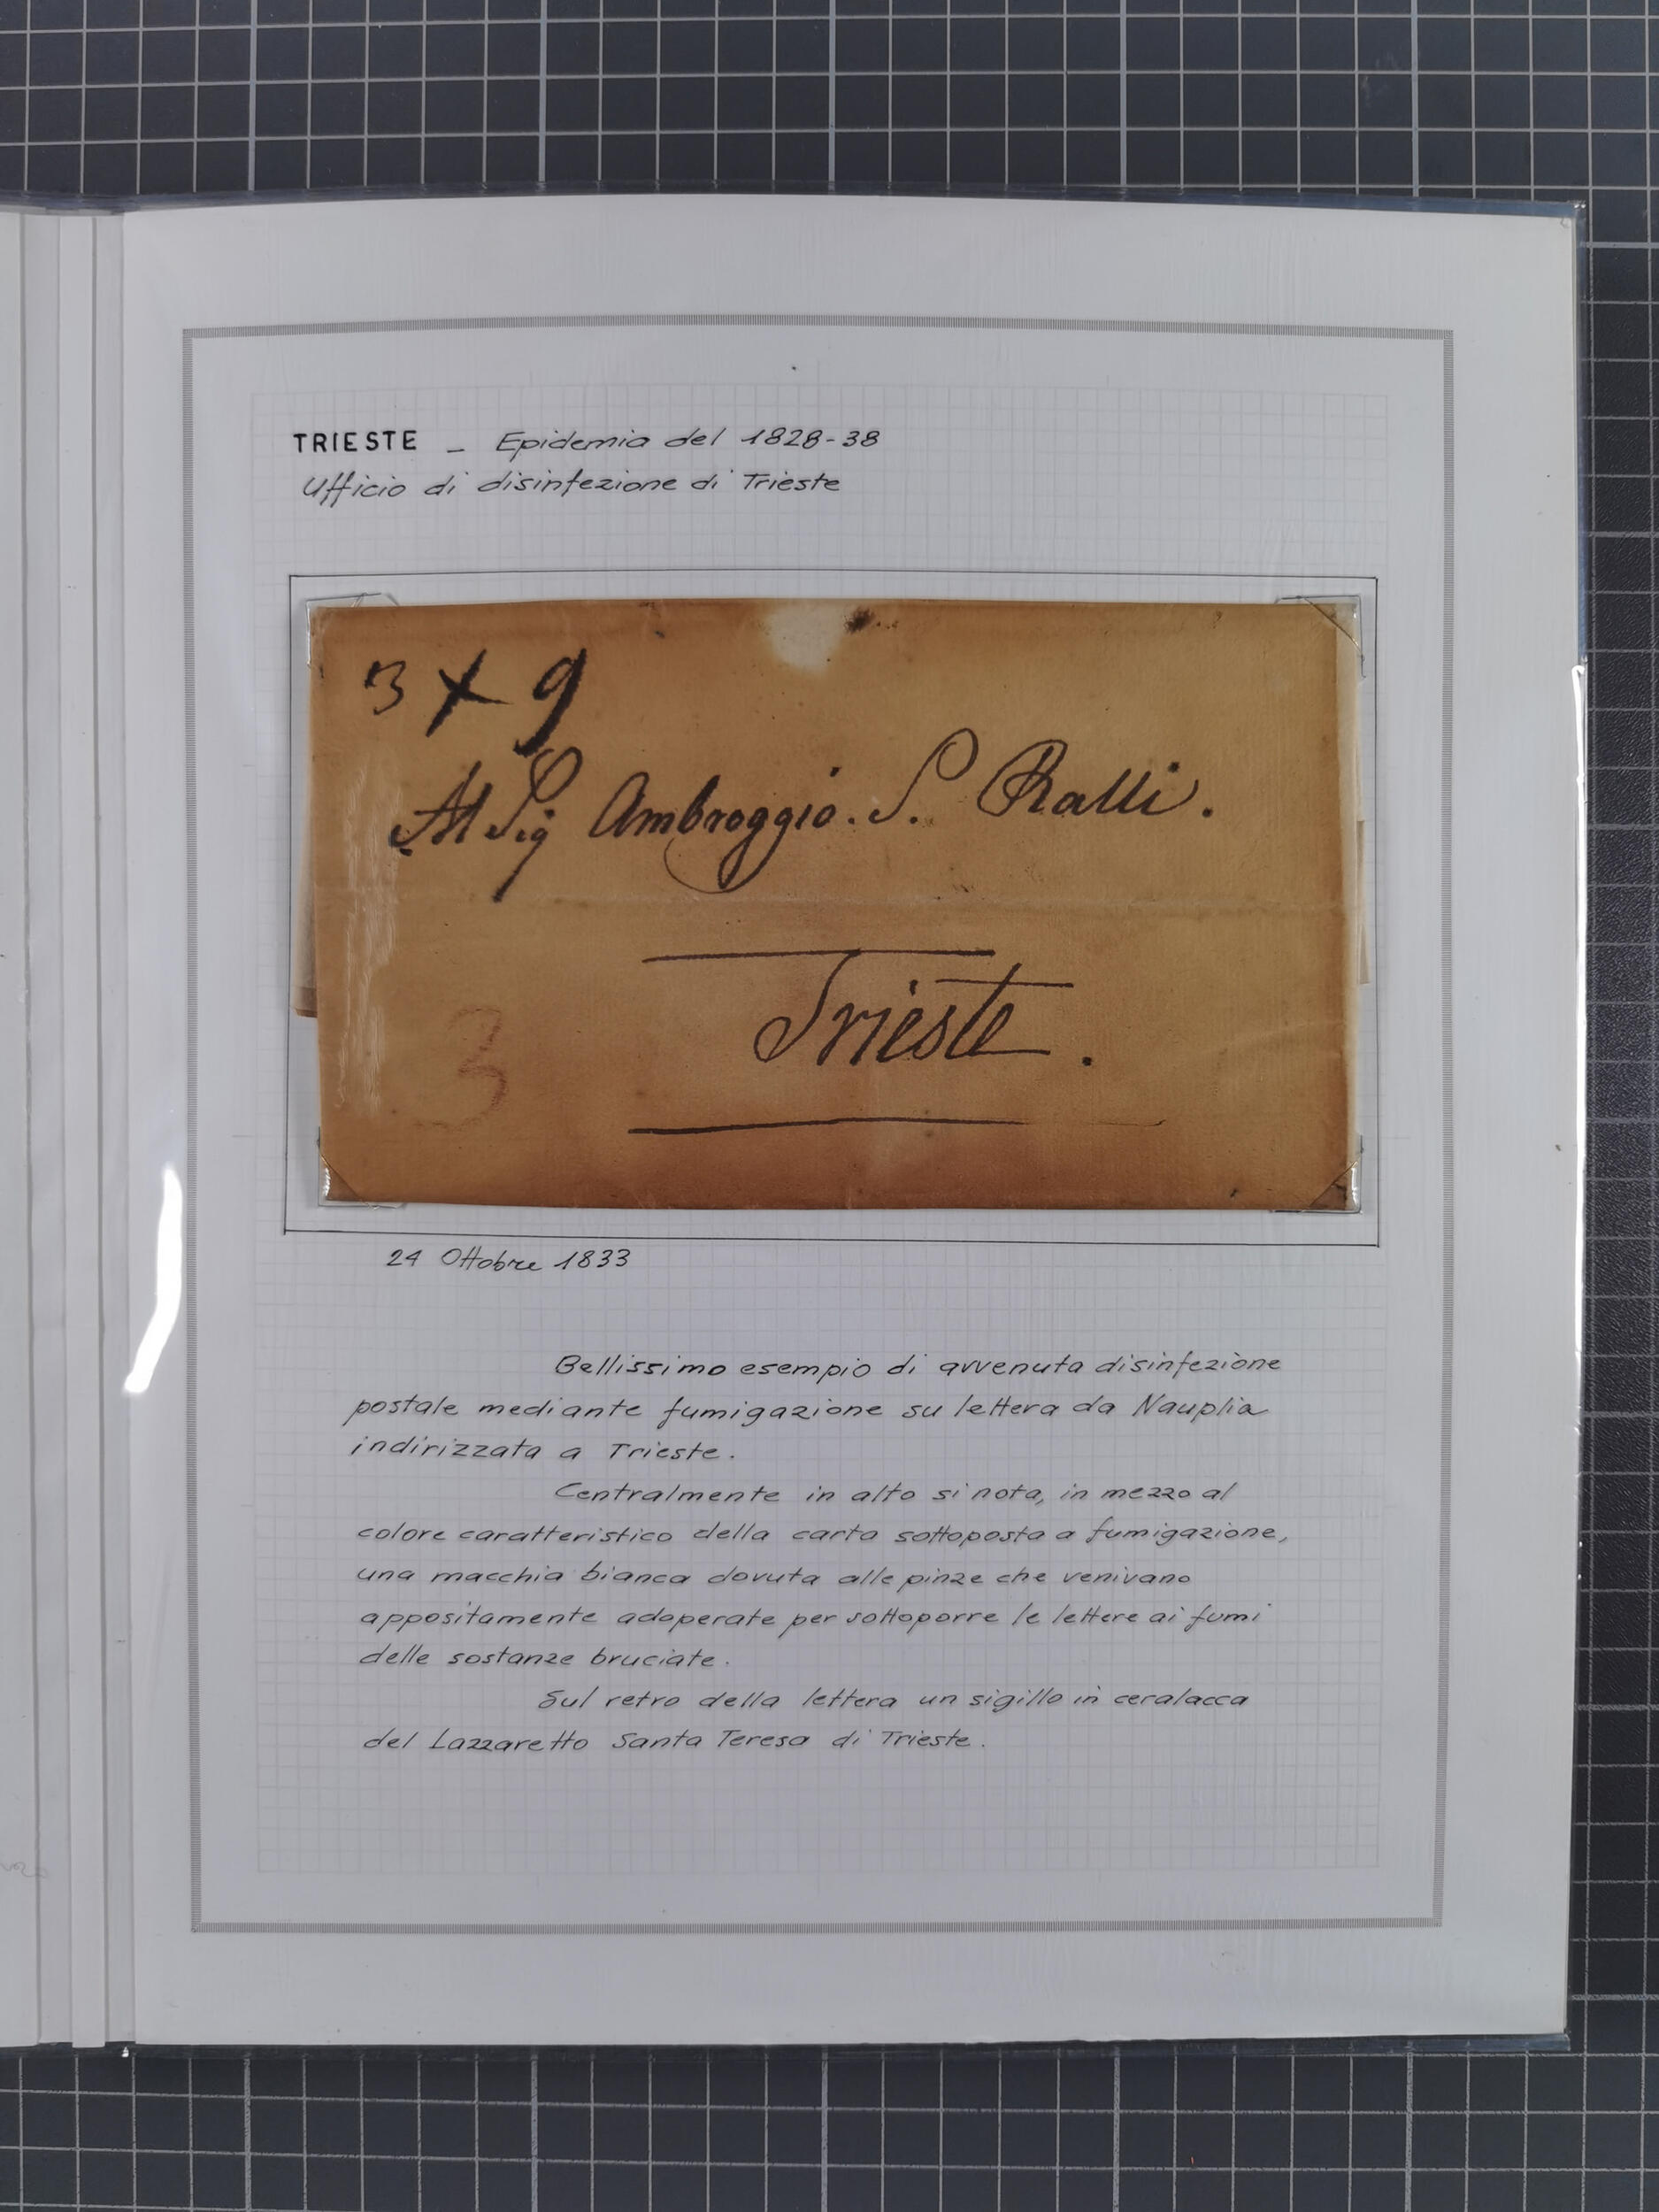 TRIESTE - Epidemia del 1828-38
Ufficio di disinfezione di Trieste
3 X 9
Al Sig Ambroggio. S. Ralli.
Trieste.
3
24 Ottobre 1833
Bellissimo esempio di avvenuta disinfezione
postale mediante fumigazione su lettera da Nauplia
indirizzata a Trieste.
Centralmente in alto si nota, in mezzo al
colore caratteristico della carta sottoposta a fumigazione,
una macchia bianca dovuta alle pinze che venivano
appositamente adoperate per sottoporre le lettere ai fumi
delle sostanze bruciate.
Sul retro della lettera un sigillo in ceralacca
del Lazzaretto Santa Teresa di Trieste.